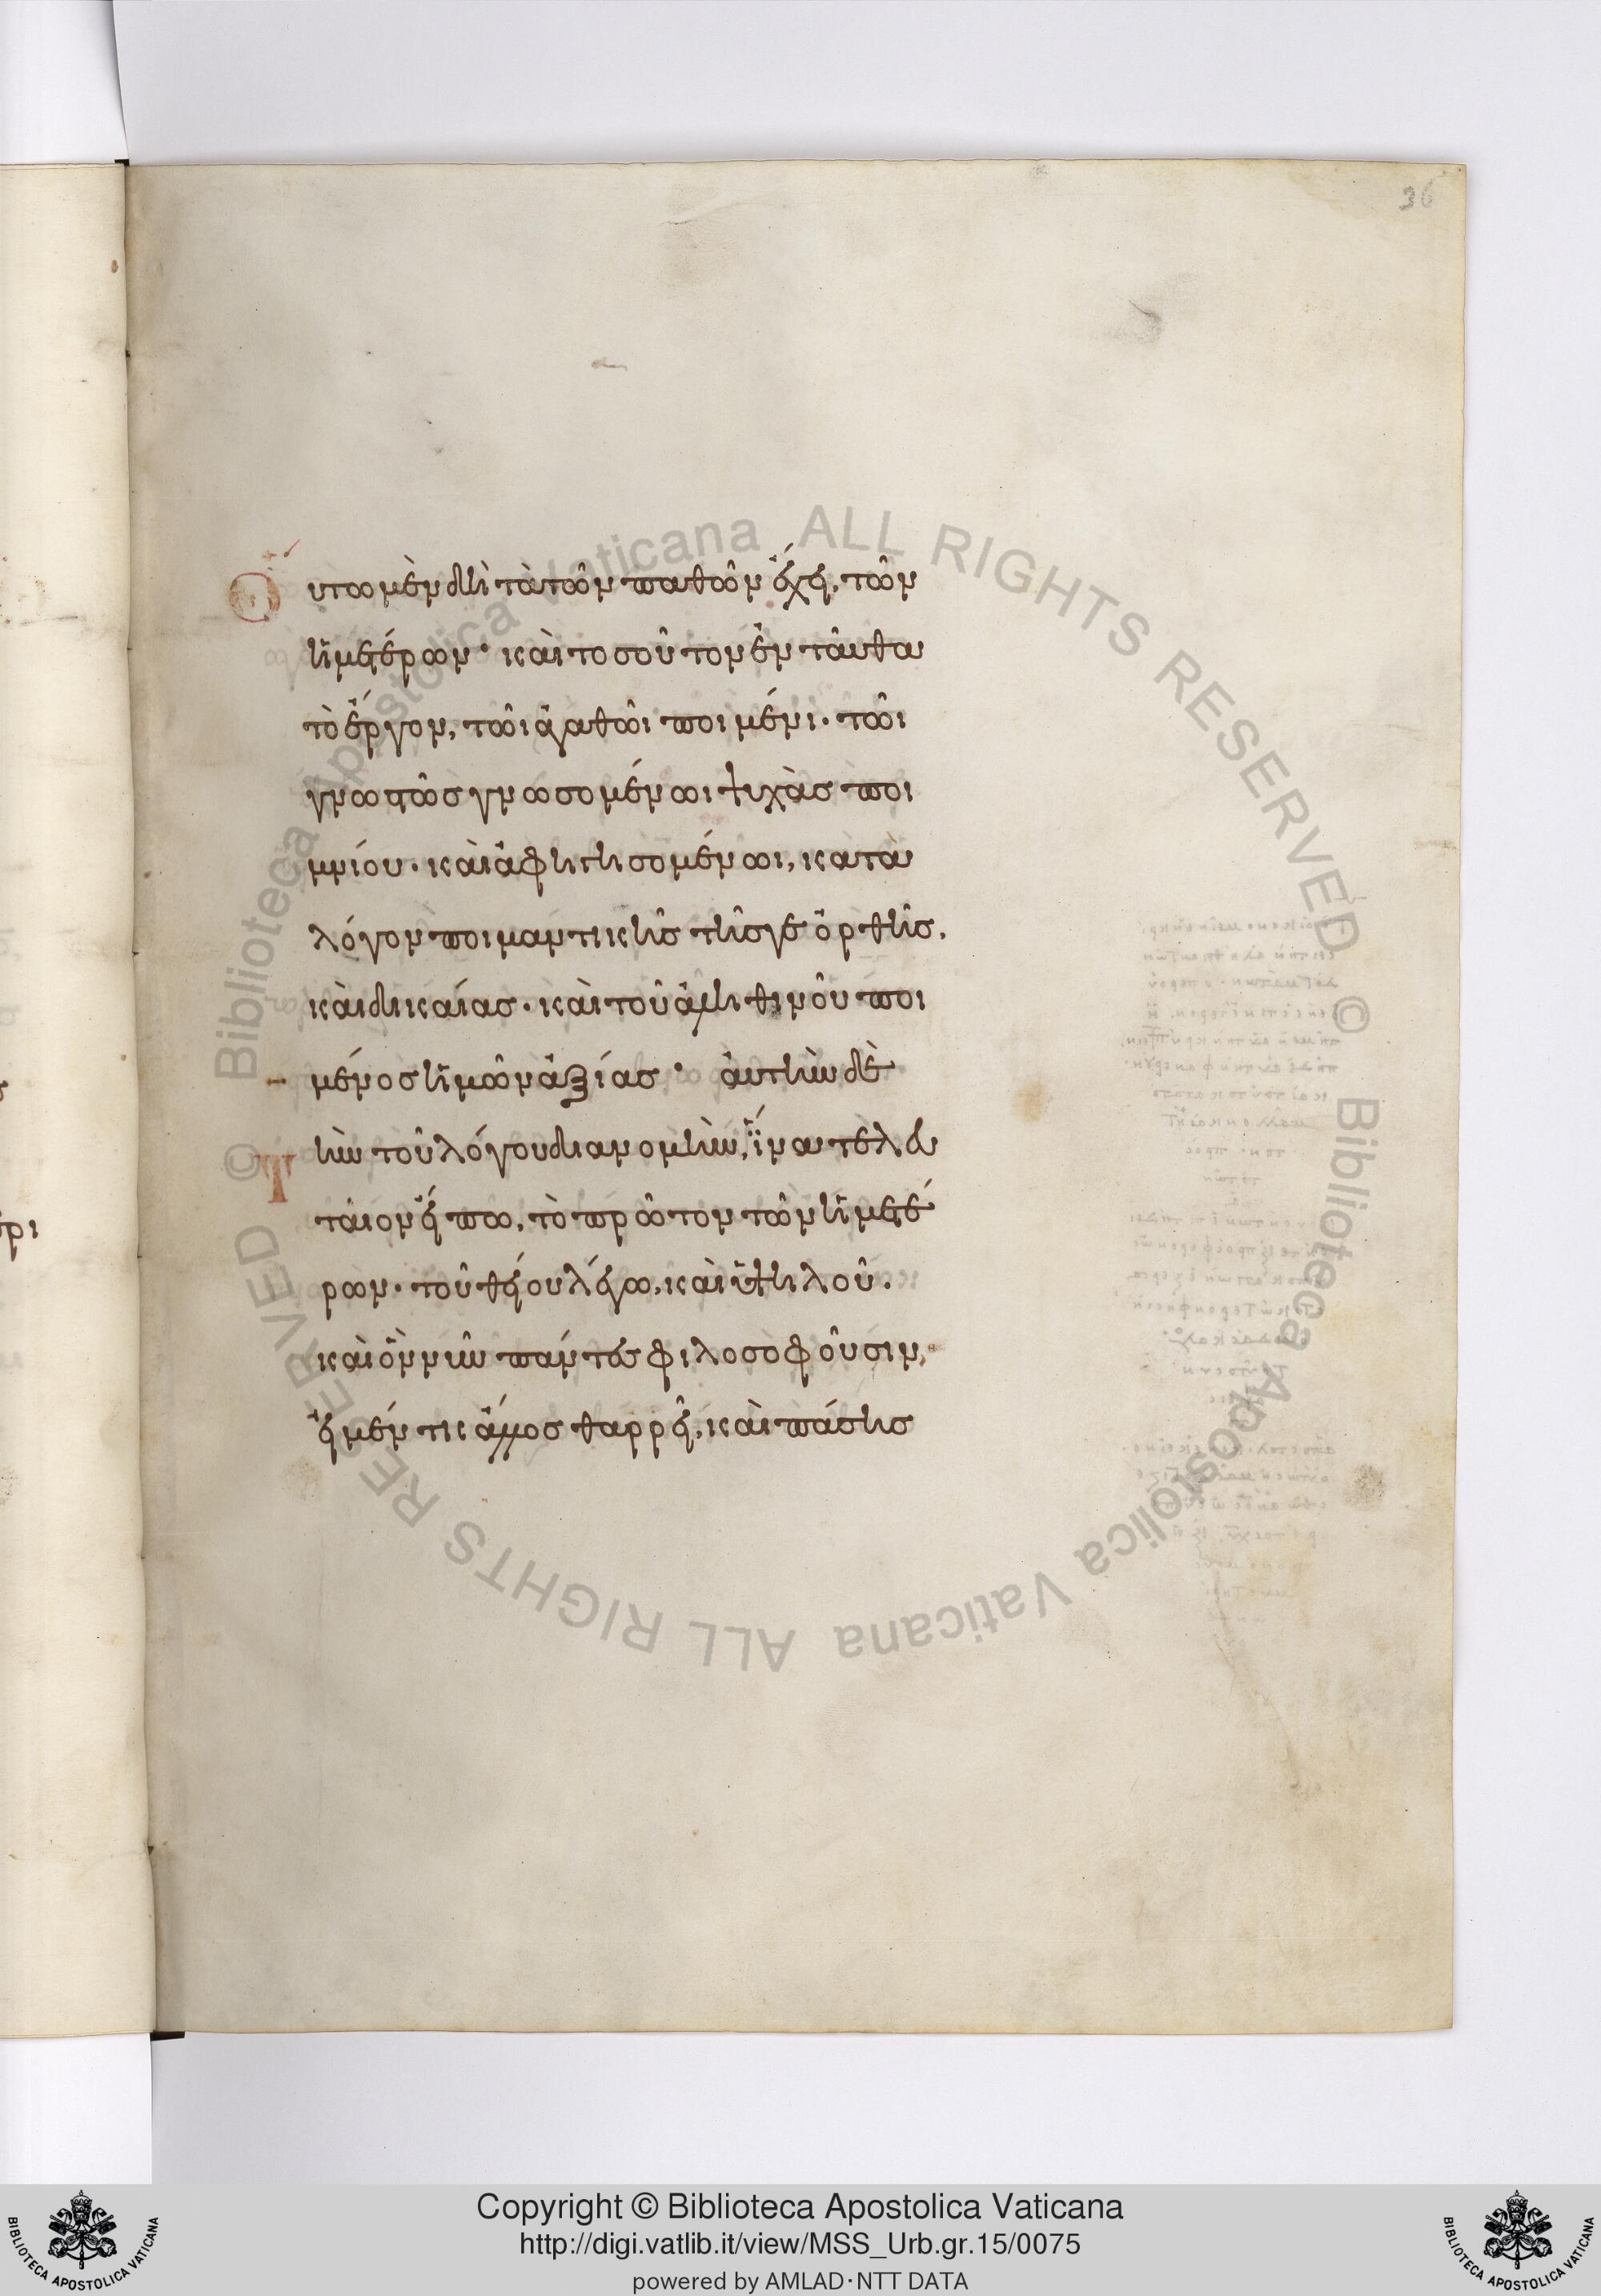 36
Οὕτω μὲν δὴ τὰ τῶν παθῶν ἔχει, τῶν
ἡμετέρων· καὶ τοσοῦτον ἐνταῦθα
τὸ ἔργον, τῶι ἀγαθῶι ποιμένι· τῶι
γνωστῶς γνωσομένωι ψυχὰς ποι
μνίου· καὶ ἀφηγησομένωι, κατὰ
λόγον ποιμαντικῆς τῆς γε ὀρθῆς,
καὶ δικαίας· καὶ τοῦ ἀληθινοῦ ποι
μένος ἡμῶν ἀξίας· αὐτὴν δὲ
Τὴν τοῦ λόγου διανομὴν, ἵνα τελευ
ταῖον εἴπω, τὸ πρῶτον τῶν ἡμετέ
ρων· τοῦ θείου λέγω, καὶ ὑψηλοῦ·
καὶ ὃν νῦν πάντες φιλοσοφοῦσιν,
εἰ μέν τις ἄλλος θαρρεῖ, καὶ πάσης
Biblioteca Apostolica Vaticana ALL RIGHTS RESERVED ©
Biblioteca Apostolica Vaticana ALL RIGHTS RESERVED ©
Copyright © Biblioteca Apostolica Vaticana
http://digi.vatlib.it/view/MSS_Urb.gr.15/0075
powered by AMLAD·NTT DATA
BIBLIOTECA APOSTOLICA VATICANA
BIBLIOTECA APOSTOLICA VATICANA